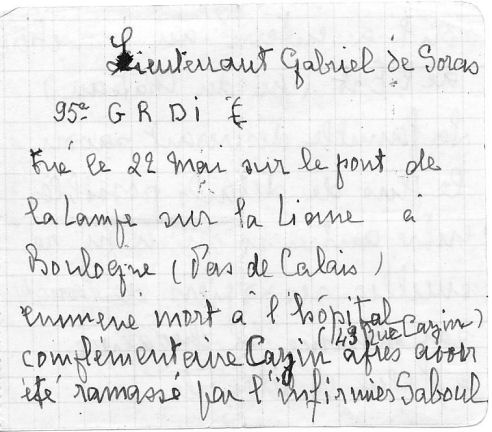 Lieutenant Gabriel de Soras
95e G R D i
tué le 22 mai sur le pont de
la Lampe sur la Liane à
Boulogne (Pas de Calais)
emmene mort a l'hôpital
(149 rue Cazin)
complémentaire Cazin après avoir
été ramassé par l'infirmier Saboul